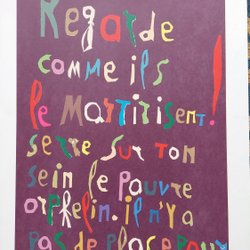 Regarde
comme ils
le Martirisent!
serre sur ton
sein le pauvre
orphelin. il n'y a
pas de place pour